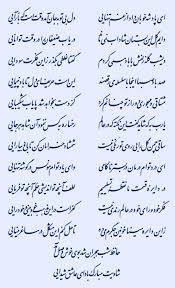 ای پادشه خوبان داد از غم تنهایی دل بی تو به جان آمد وقتست که بازآیی
دایم گل این بستان شاداب نمی‌ماند دریاب ضعیفان را در وقت توانایی
دیشب گله زلفش با باد همی کردم گفتا غلطی بگذر زین فکرت سودایی
صد باد صبا اینجا با سلسله می‌رقصند این است حریف ای دل تا باد نپیمایی
مشتاقی و مهجوری دور از تو چنانم کرد کز دست بخواهد شد پایاب شکیبایی
یارب به که شاید گفت این نکته که در عالم رخساره به کس ننمود آن شاهد هرجایی
ساقی چمن گل را بی روی تو رنگی نیست شمشاد خرامان کن تا باغ بیارایی
ای درد توام درمان در بستر ناکامی وی یاد توام مونس در گوشه تنهایی
در دایره قسمت ما نقطه تسلیمیم لطف آنچه تو اندیشی حکم آنچه تو فرمایی
فکر خود و رای خود در عالم رندی نیست کفرست درین مذهب خودبینی و خودرایی
زین دایره مینا خونین جگرم می ده تا حل کنم این مشکل در ساغر مینایی
حافظ شب هجران شد بوی خوش وصل آمد
شادیت مبارک باد ای عاشق شیدایی